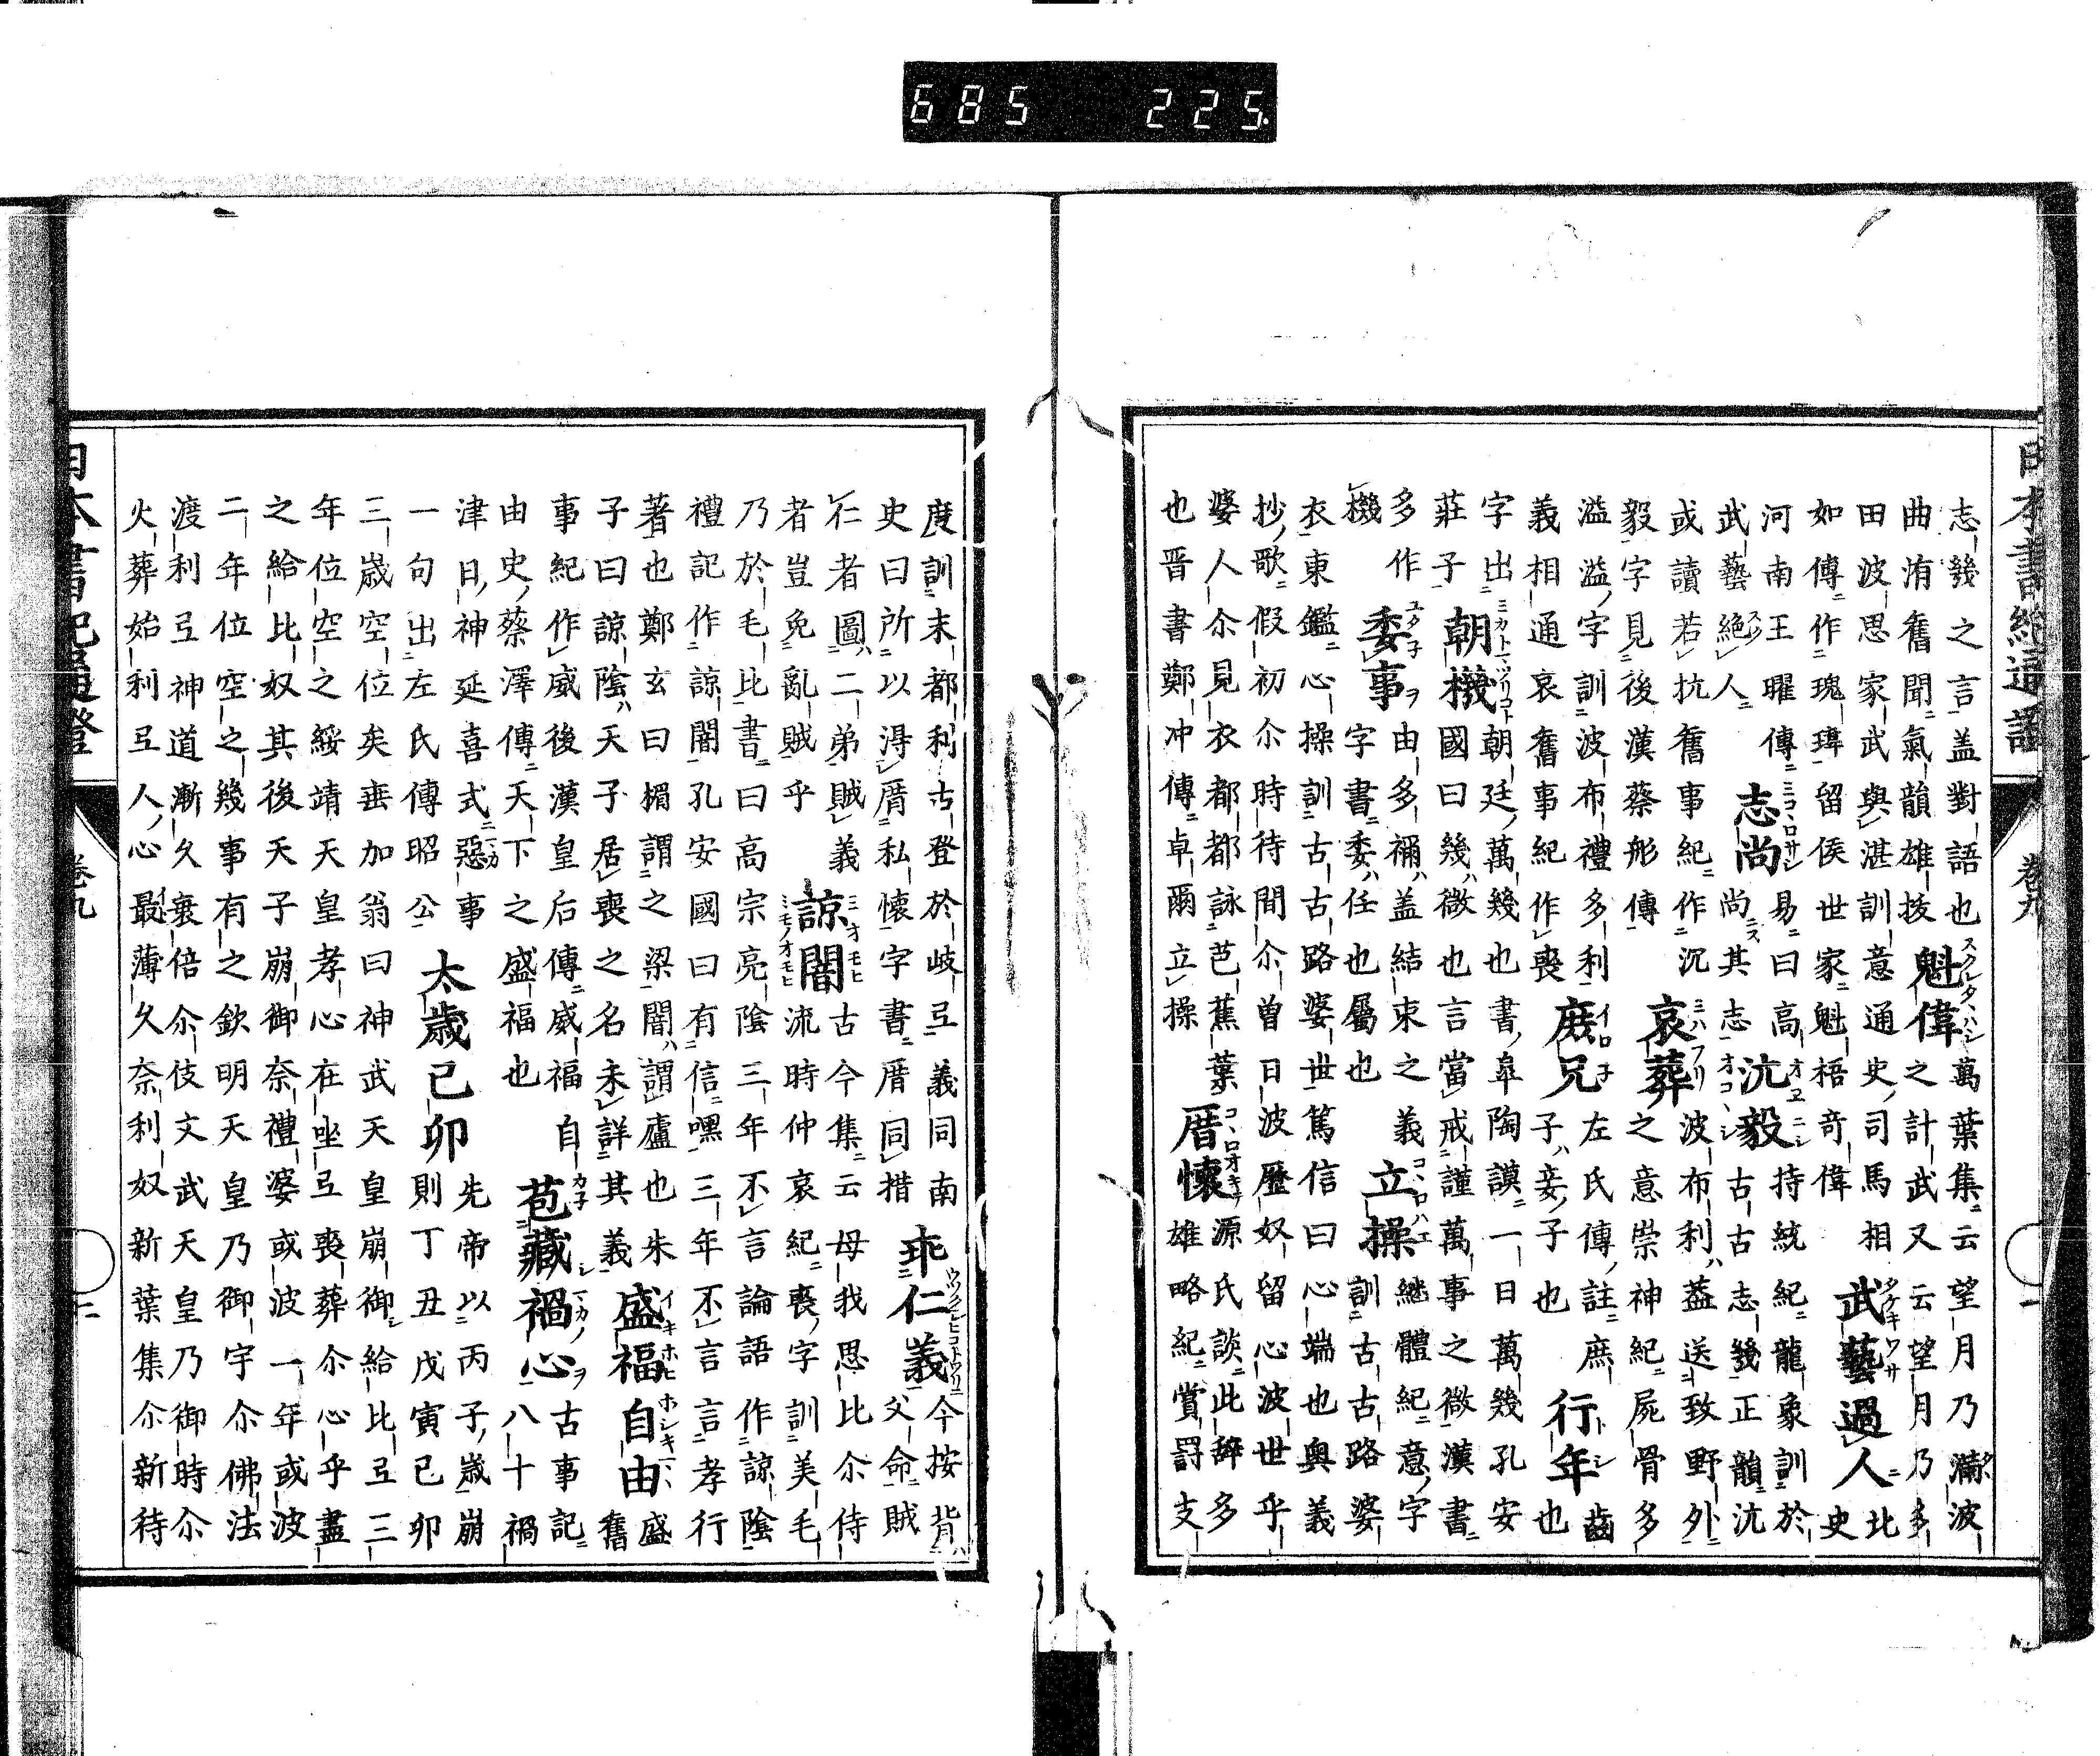 685 225
志幾之言盖對語也
魁偉
萬葉集云望月乃滿波
曲洧舊聞氣韻雄拔
之計武又云望月乃多
田波思家武與湛訓意通史司馬相
武藝過人
北史
如傳作瑰瑋留侯世家魁梧奇偉
河南王曜傳
志尚
易曰高
沆毅
持統紀龍象訓於
武藝絶人
尚其志
古古志幾正韻沆
或讀若抗舊事紀作沉
哀葬
波布利盖送致野外
毅字見後漢蔡彤傳
之意崇神紀屍骨多
溢溢字訓波布禮多利
庶兄
左氏傳註庶
行年
齒也
義相通哀舊事紀作喪
子妾子也
字出
朝機
朝廷萬幾也書皐陶謨一日萬幾孔安
莊子
國曰幾微也言當戒謹萬事之微漢書
多作機
委事
由多禰盖結束之義
立操
繼體紀意字
字書委任也屬也
訓古古路婆
衣東鑑心操訓古古路婆世篤信曰心端也與義
抄歌假初尒時待間尒曽日波歴奴留心波世乎
婆人尒見衣都都詠芭蕉葉
厝懷
源氏談此辭多
也晋書鄭冲傳卓爾立操
雄略紀賞罰支
日本書紀通證 卷九 一
度訓末都利古登於岐弖義同南
乖仁義
今按背
史曰所以淂厝私懷字書厝同措
父命賊
仁者圖二弟賊義
諒闇
古今集云母我思比尒侍
者豈免亂賊乎
流時仲哀紀喪字訓美毛
乃於毛比書曰高宗亮陰三年不言論語作諒陰
禮記作諒闇孔安國曰有信嘿三年不言言孝行
著也鄭玄曰楣謂之梁闇謂廬也朱
盛福自由
盛
子曰諒陰天子居喪之名未詳其義
舊
事紀作威後漢皇后傳威福自
苞藏禍心
古事記
由史蔡澤傳天下之盛福也
八十禍
津日神延喜式惡事
太歳己卯
先帝以丙子歳崩
一句出左氏傳昭公
則丁丑戊寅己卯
三歳空位矣垂加翁曰神武天皇崩御給比弖三
年位空之綏靖天皇孝心在坐弖喪葬尒心乎盡
之給比奴其後天子崩御奈禮婆或波一年或波
二年位空之幾事有之欽明天皇乃御宇尒佛法
渡利弖神道漸久衰倍尒伎文武天皇乃御時尒
火葬始利弖人心最薄久奈利奴新葉集尒新待
日本書紀通證 卷九 二